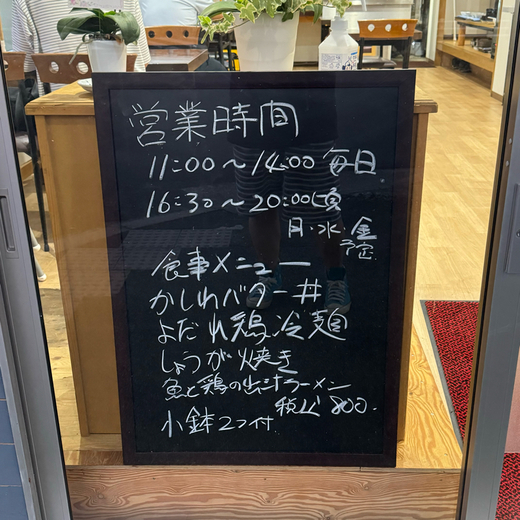 営業時間
11:00〜14:00 毎日
16:30〜20:00頃
月・水・金
予定
食事メニュー
かしわバター丼
よだれ鶏冷麺
しょうが焼き
魚と鶏の出汁ラーメン
税込 800.
小鉢2つ付